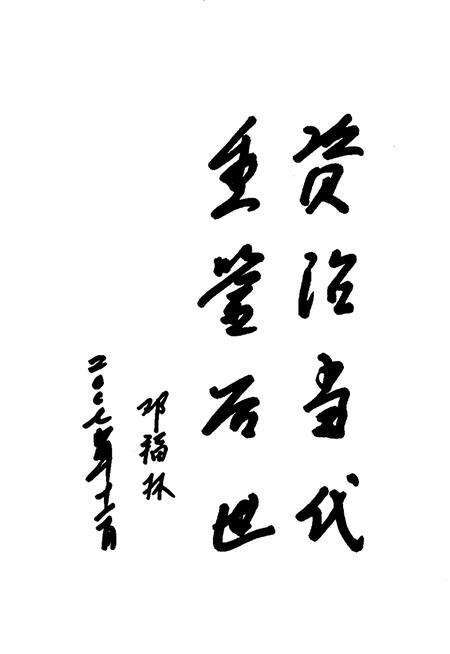 资治当代
垂鉴后世
邓福林
二〇〇七年十二月